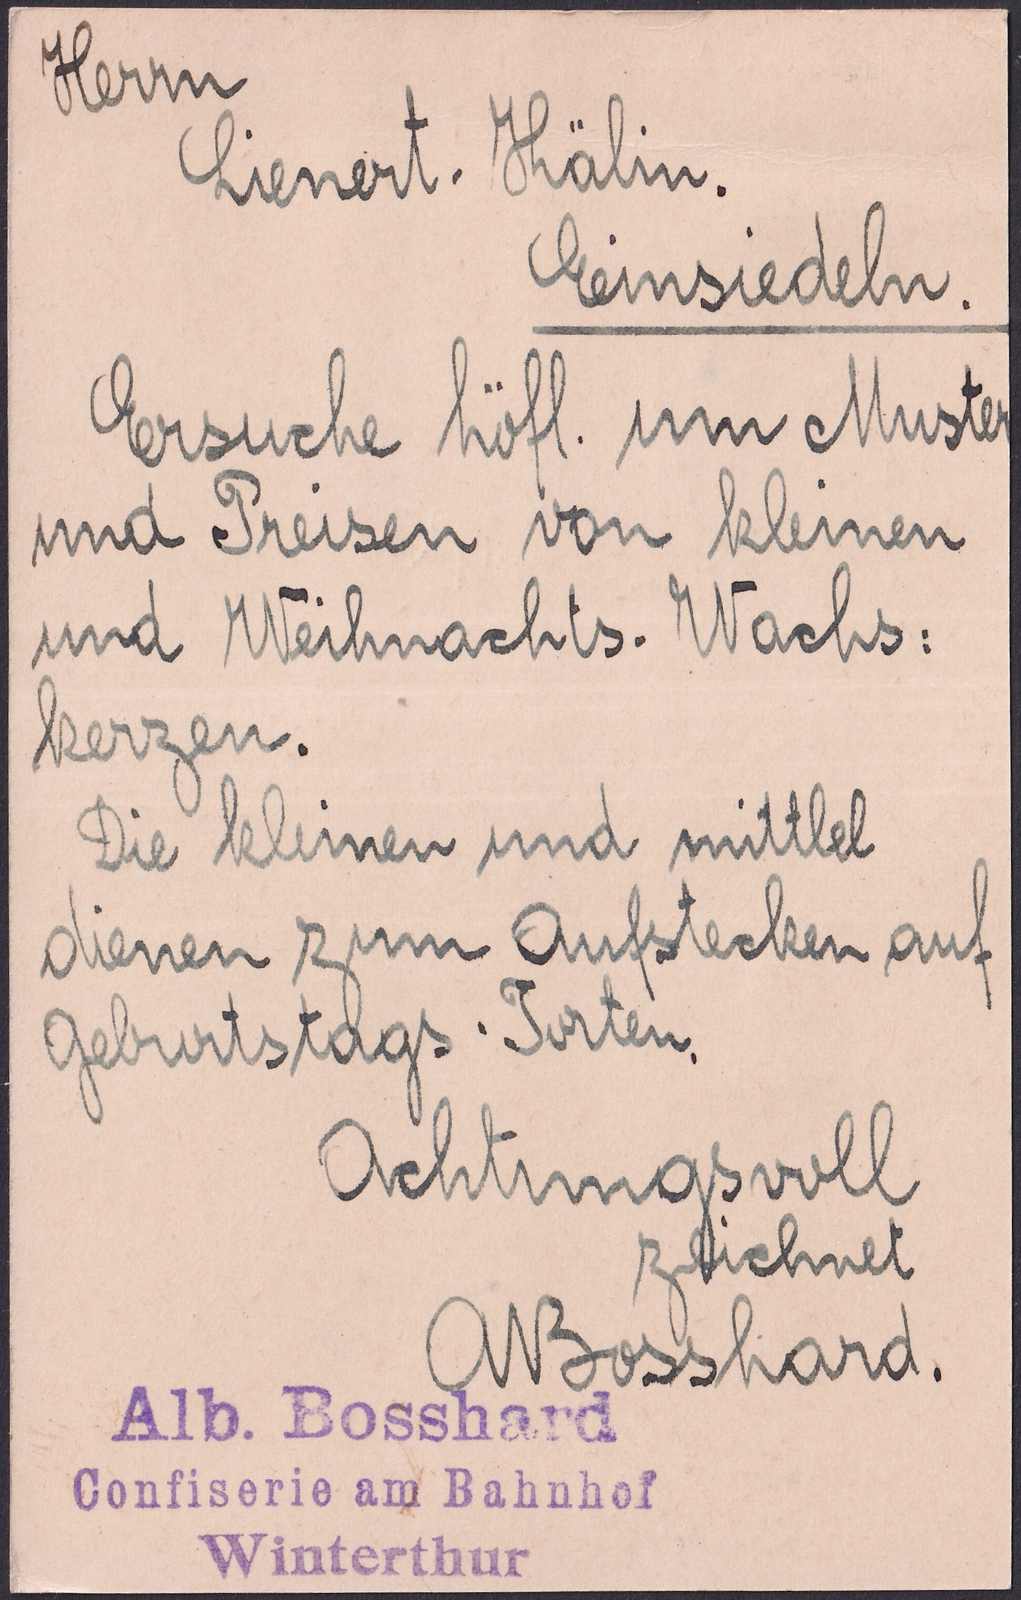 Herrn
Lienert. Kälin.
Einsiedeln.
Ersuche höfl. um Muster
und Preisen von kleinen
und Weihnachts. Wachs:
kerzen.
Die kleinen und mittlel
dienen zum Aufstecken auf
Geburtstags. Torten.
Achtungsvoll
zeichnet
A Bosshard.
Alb. Bosshard
Confiserie am Bahnhof
Winterthur